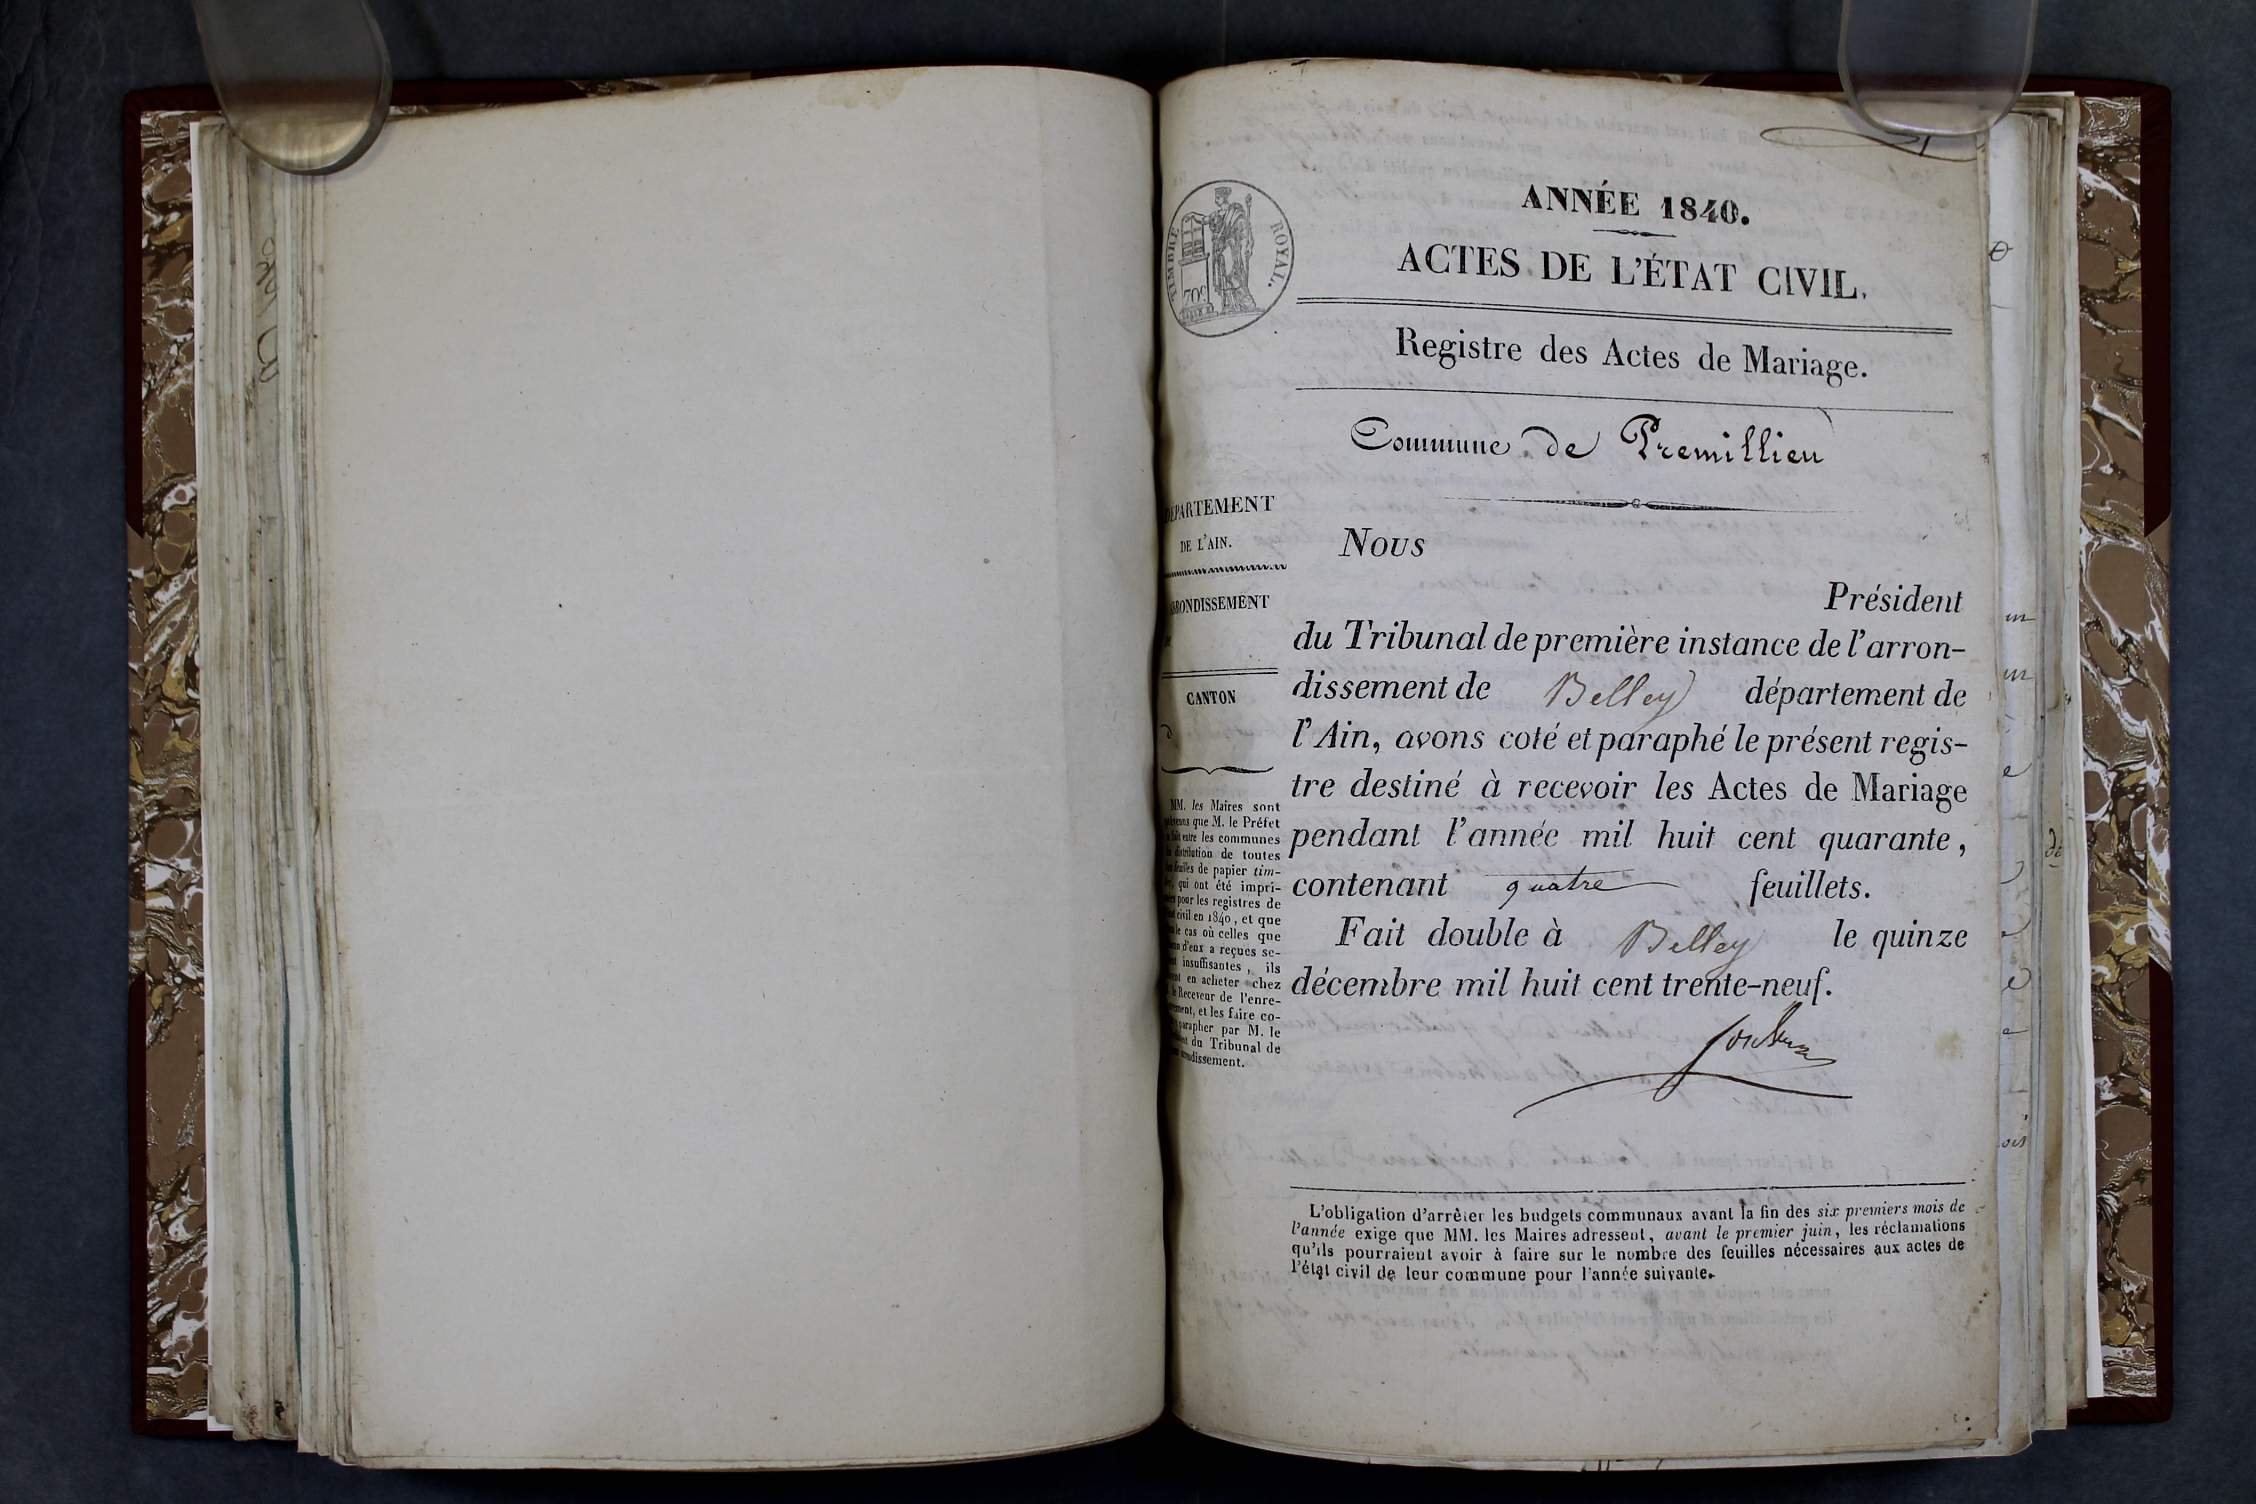 ANNÉE 1840.
ACTES DE L'ÉTAT CIVIL.
TIMBRE ROYAL.
70c
Registre des Actes de Mariage.
Commune de Premillieu
DÉPARTEMENT
DE L'AIN.
ARRONDISSEMENT
DE
CANTON
d
MM. les Maires sont
prévenus que M. le Préfet
a fait entre les communes
la distribution de toutes
les feuilles de papier tim-
bré, qui ont été impri-
mées pour les registres de
l'état civil en 1840, et que
dans le cas où celles que
chacun d'eux a reçues se-
raient insuffisantes, ils
devront en acheter chez
le Receveur de l'enre-
gistrement, et les faire co-
ter et parapher par M. le
Président du Tribunal de
leur arrondissement.
Nous
Président
du Tribunal de première instance de l'arron-
dissement de Belley département de
l'Ain, avons coté et paraphé le présent regis-
tre destiné à recevoir les Actes de Mariage
pendant l'année mil huit cent quarante,
contenant quatre feuillets.
Fait double à Belley le quinze
décembre mil huit cent trente-neuf.
L'obligation d'arrêter les budgets communaux avant la fin des six premiers mois de
l'année exige que MM. les Maires adressent, avant le premier juin, les réclamations
qu'ils pourraient avoir à faire sur le nombre des feuilles nécessaires aux actes de
l'état civil de leur commune pour l'année suivante.